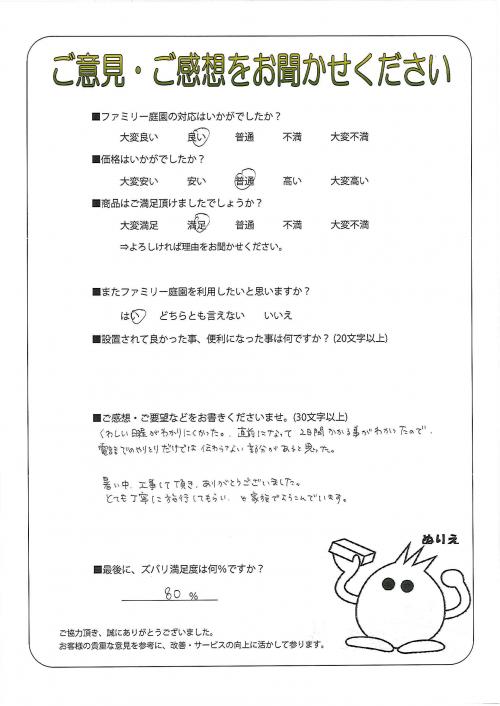 ご意見・ご感想をお聞かせください
■ファミリー庭園の対応はいかがでしたか？
大変良い 良い 普通 不満 大変不満
■価格はいかがでしたか？
大変安い 安い 普通 高い 大変高い
■商品はご満足頂けましたでしょうか？
大変満足 満足 普通 不満 大変不満
⇒よろしければ理由をお聞かせください。
■またファミリー庭園を利用したいと思いますか？
はい どちらとも言えない いいえ
■設置されて良かった事、便利になった事は何ですか？(20文字以上)
■ご感想・ご要望などをお書きくださいませ。(30文字以上)
くわしい日程がわかりにくかった。直前になって2日間かかる事がわかったので、
電話でのやりとりだけでは伝わらない部分があると思った。
暑い中、工事して頂き、ありがとうございました。
とても丁寧に施行してもらい、家族でよろこんでいます。
ぬりえ
■最後に、ズバリ満足度は何％ですか？
80 %
ご協力頂き、誠にありがとうございました。
お客様の貴重な意見を参考に、改善・サービスの向上に活かして参ります。